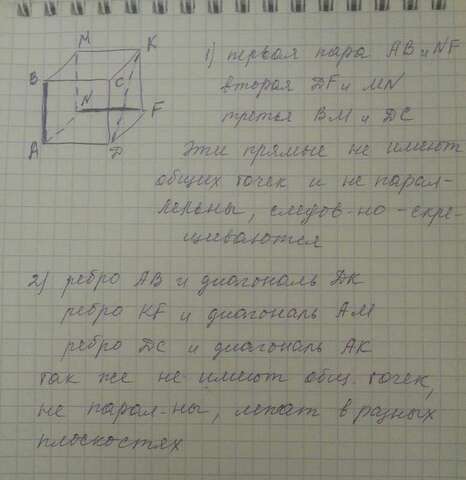 M
K
1) первая пара AB и NF
B
C
вторая DF и MN
N
F
третья BM и DC
A
D
Эти прямые не имеют
общих точек и не парал-
лельны, следов-но - скре-
щиваются
2) ребро AB и диагональ DK
ребро KF и диагональ AM
ребро DC и диагональ AK
так же не имеют общ. точек,
не парал-ны, лежат в разных
плоскостях